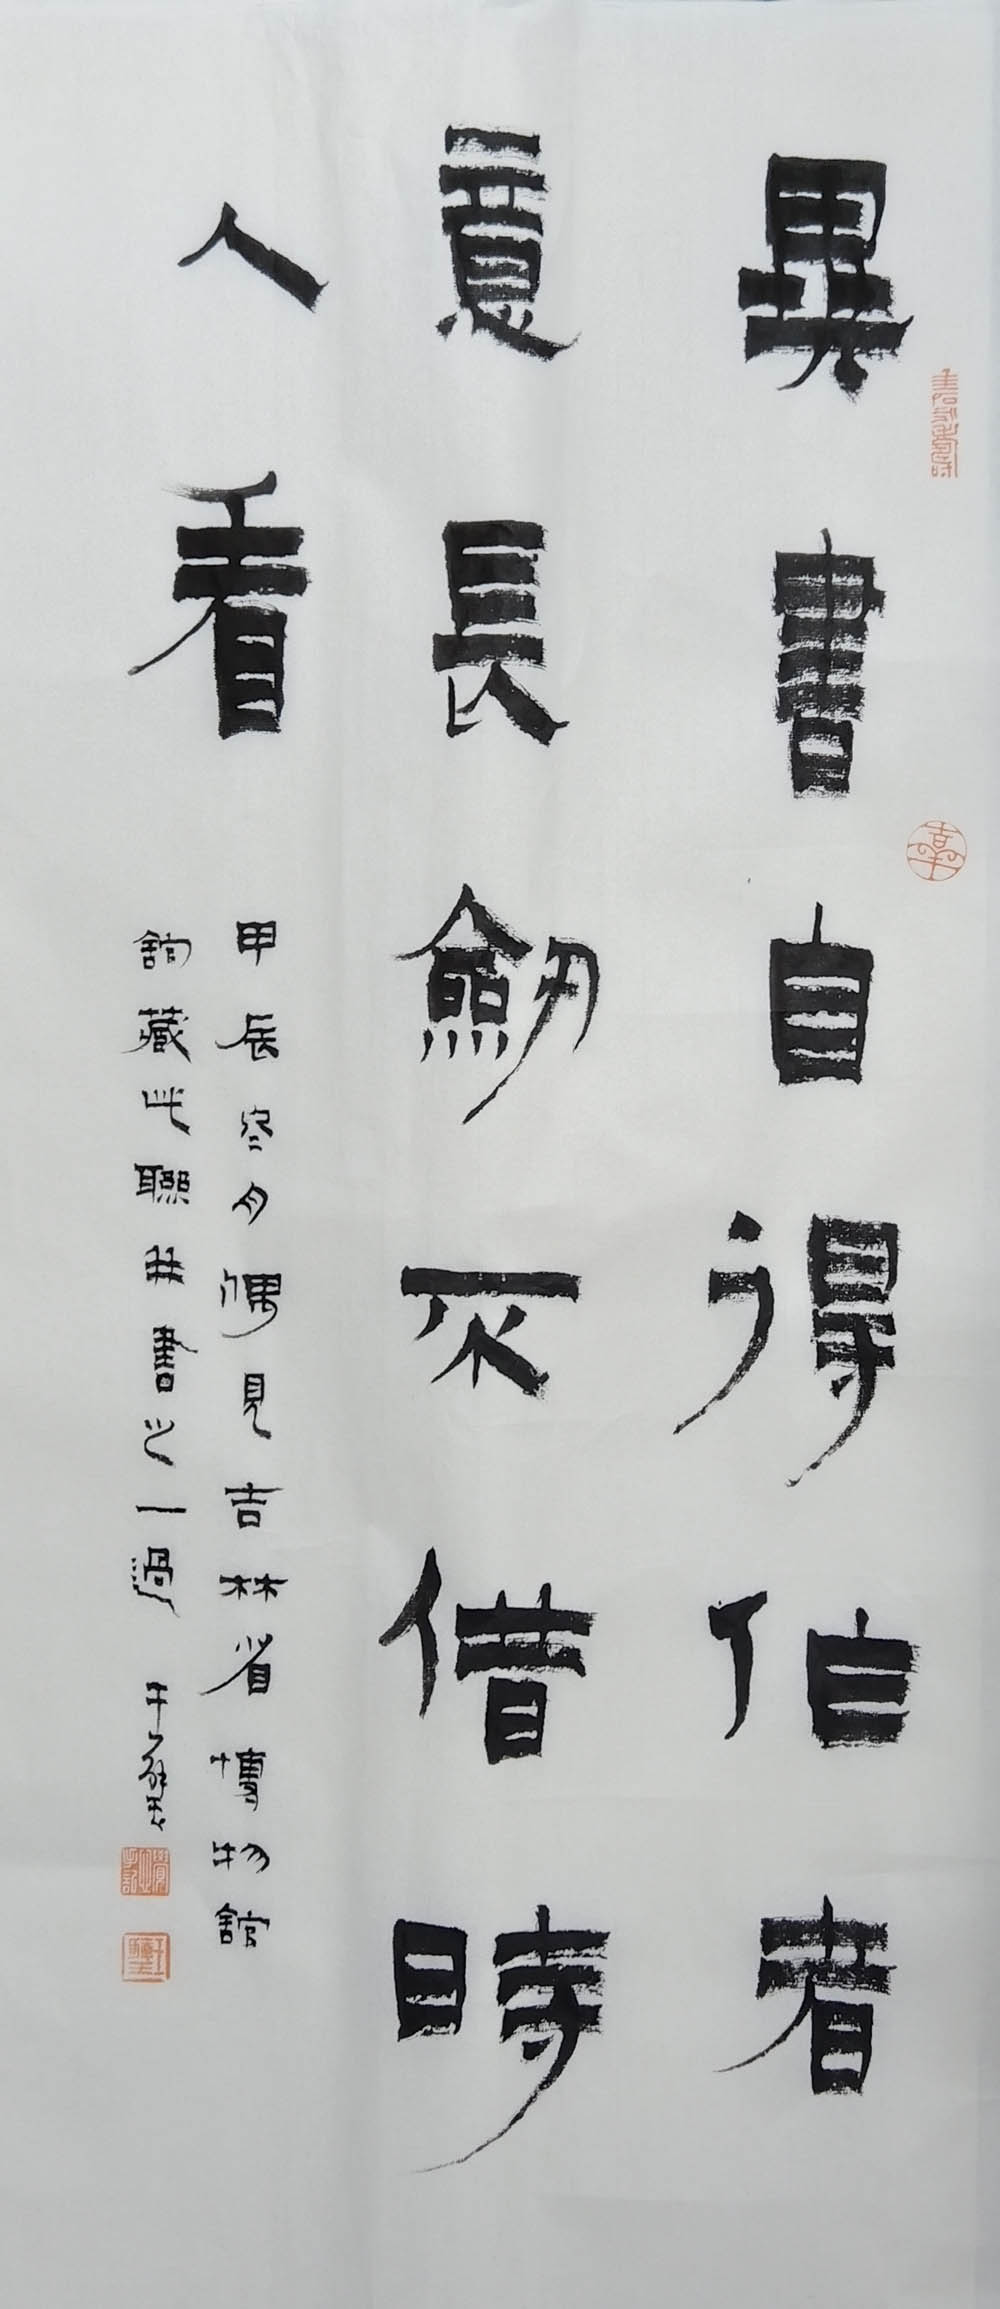 異書自得作者
意長劒不借時
人看
甲辰冬月偶見吉林省博物館
館藏此聯并書之一過